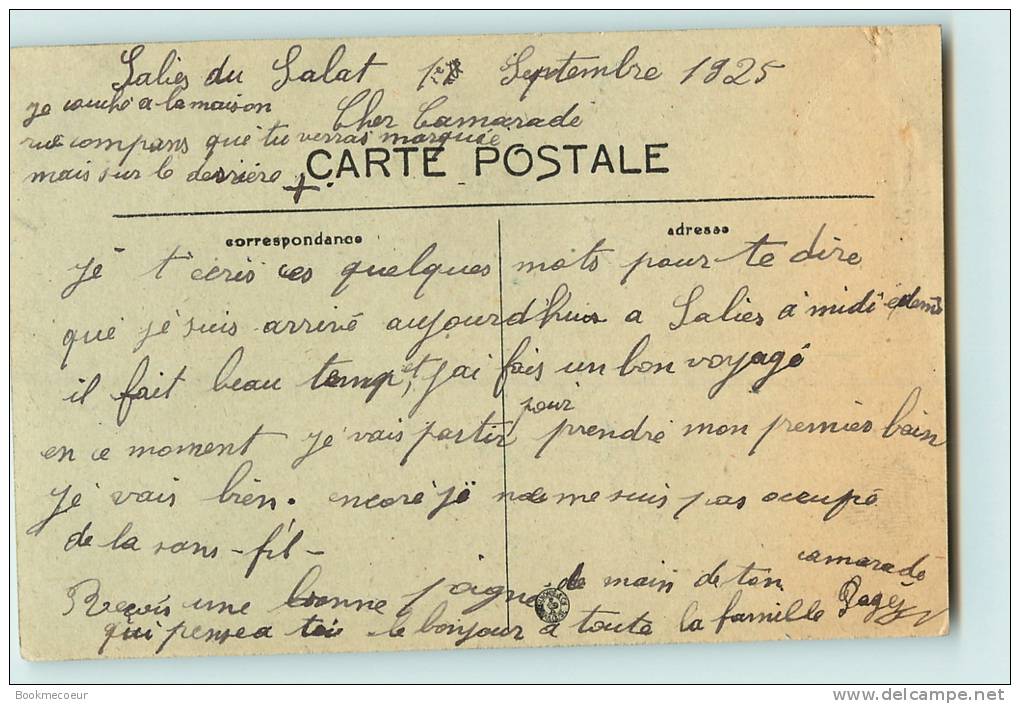 Salies du Salat 1er Septembre 1925
je couche a la maison
Cher Camarade
rue compans que tu verras marquée
mais sur le derrière +
CARTE POSTALE
correspondance
adresse
je t'écris ces quelques mots pour te dire
que je suis arrivé aujourd'hui a Salies a midi
il fait beau temp, et j'ai fais un bon voyage
en ce moment je vais partir pour prendre mon premier bain
je vais bien. encore je ne me suis pas occupé
de la sans-fil-
Reçois une bonne poigné de main de ton camarade
qui pense a toi le bonjour a toute la famille Pagès
Bookmecoeur
www.delcampe.net